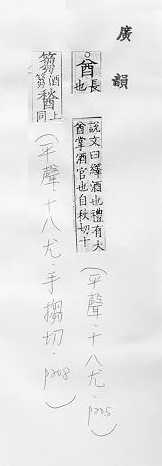 廣韻
酋 長也
說文曰繹酒也禮有大酋掌酒官也自秋切十
(平聲‧十八尤‧p205)
篘 酒篘 醔 上同
(平聲‧十八尤‧手搊切‧p208)